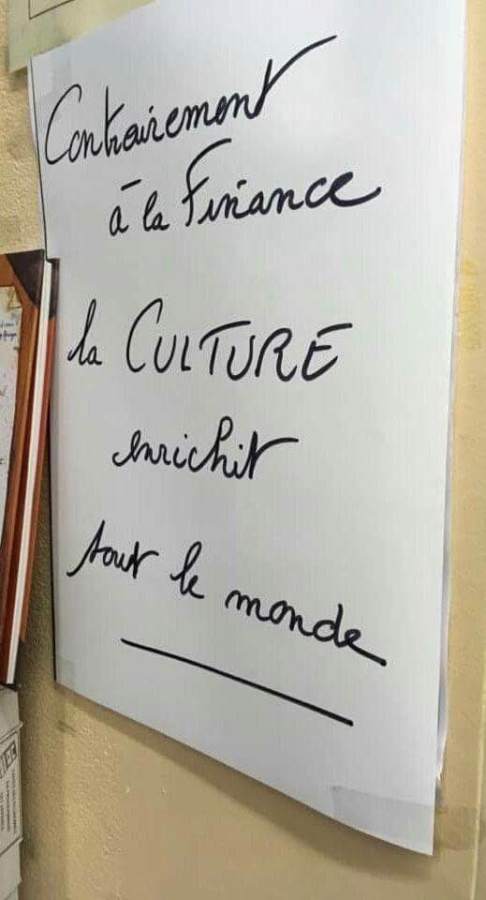 Contrairement
à la Finance
la CULTURE
enrichit
tout le monde